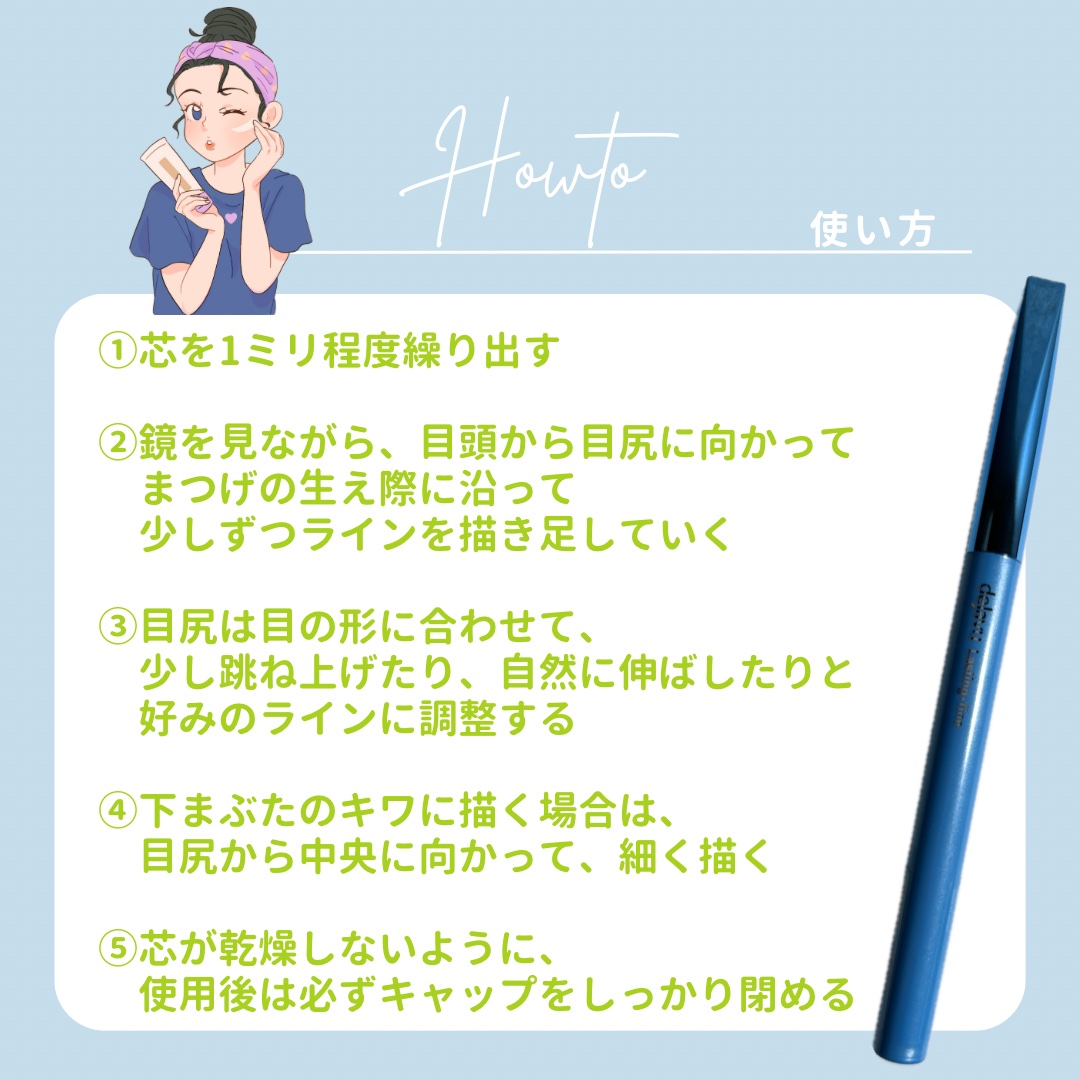 Howto
使い方
①芯を1ミリ程度繰り出す
②鏡を見ながら、目頭から目尻に向かって
まつげの生え際に沿って
少しずつラインを描き足していく
③目尻は目の形に合わせて、
少し跳ね上げたり、自然に伸ばしたりと
好みのラインに調整する
④下まぶたのキワに描く場合は、
目尻から中央に向かって、細く描く
⑤芯が乾燥しないように、
使用後は必ずキャップをしっかり閉める
dejavu